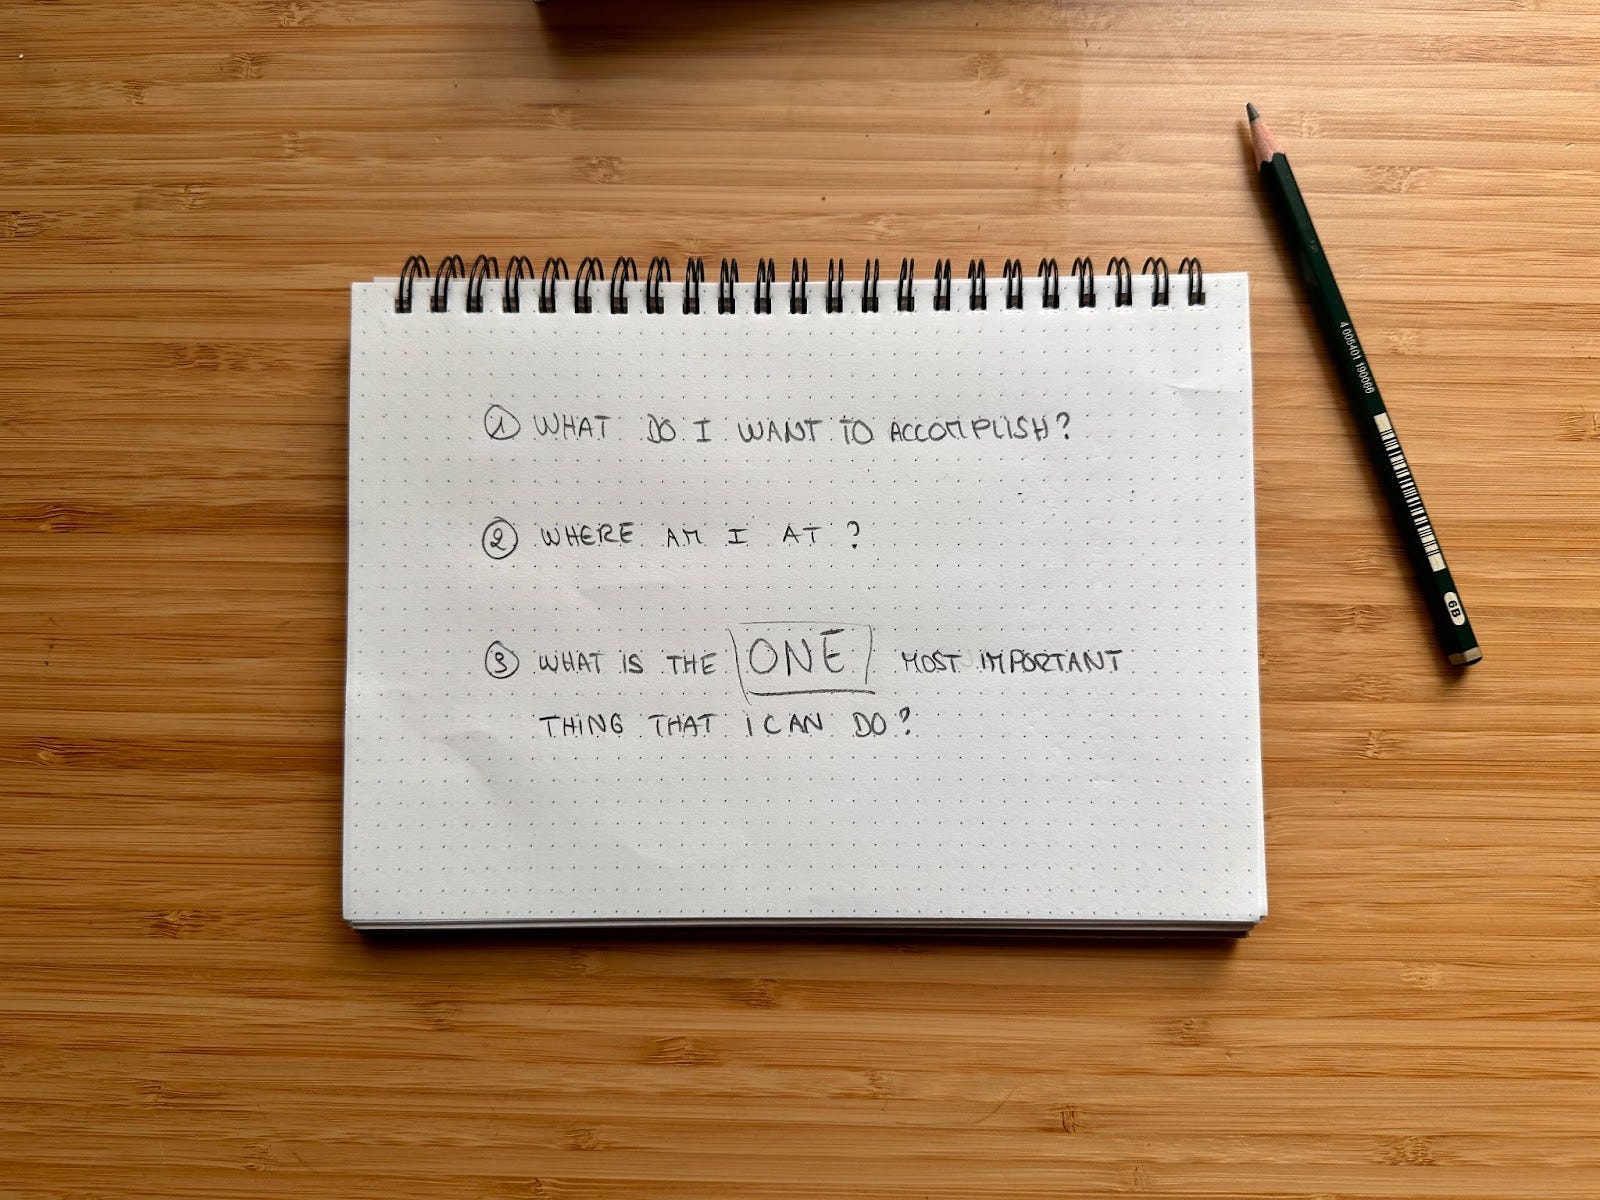 ① WHAT DO I WANT TO ACCOMPLISH?
② WHERE AM I AT?
③ WHAT IS THE ONE MOST IMPORTANT
THING THAT I CAN DO?
4 005401 190066
6B